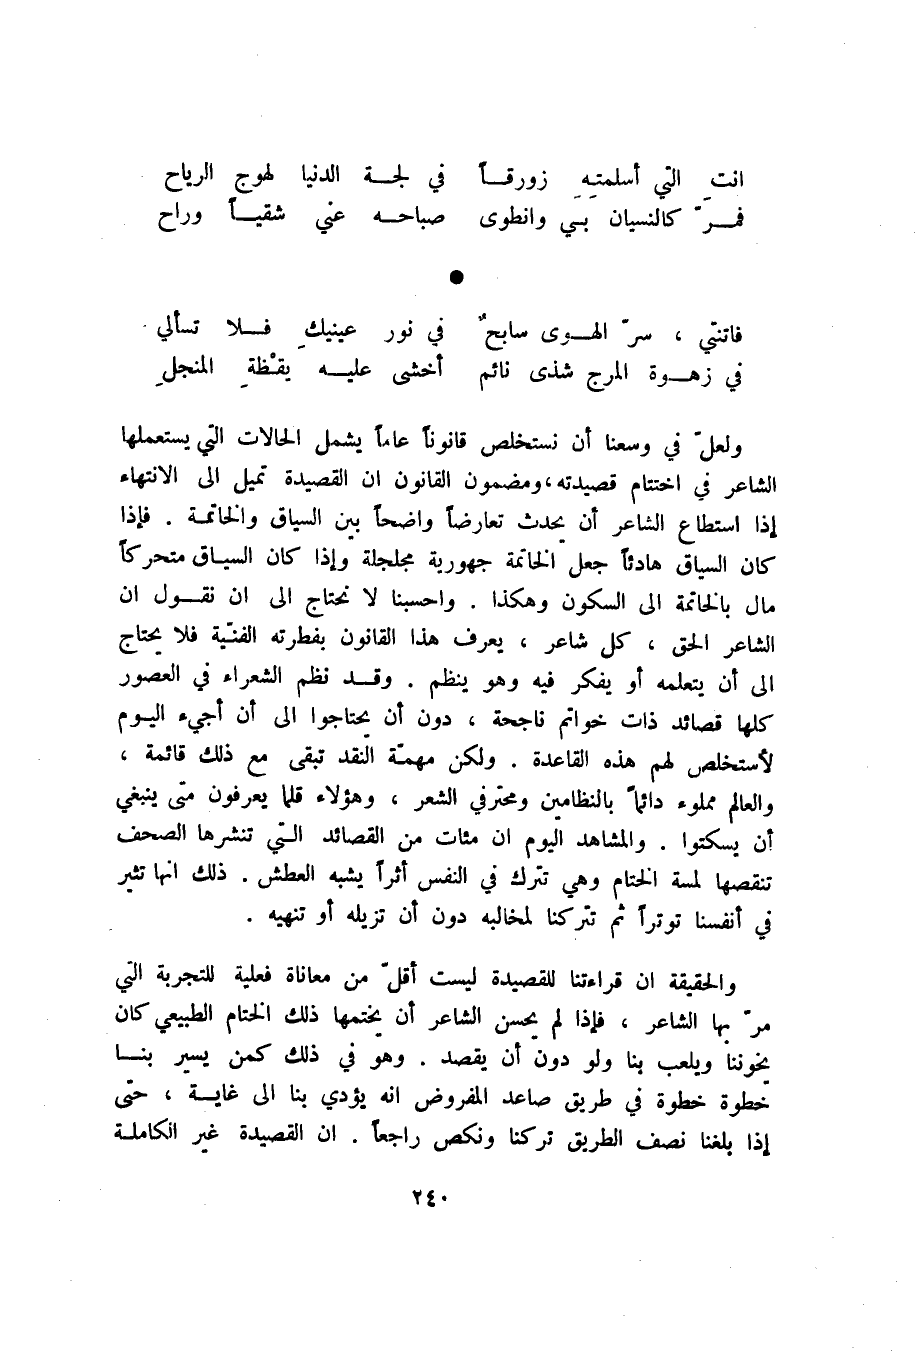 انتِ التي أسلمتِهِ زورقاً في لجة الدنيا لهوج الرياح
فمرّ كالنسيان بي وانطوى صباحه عني شقياً وراح
●
فاتنتي ، سرّ الهوى سابحٌ في نور عينيكِ فلا تسألي
في زهوة المرج شذى نائم أخشى عليه يقْظةِ المنجلِ
ولعلّ في وسعنا أن نستخلص قانوناً عاماً يشمل الحالات التي يستعملها
الشاعر في اختتام قصيدته، ومضمون القانون ان القصيدة تميل الى الانتهاء
إذا استطاع الشاعر أن يحدث تعارضاً واضحاً بين السياق والخاتمة . فإذا
كان السياق هادئاً جعل الخاتمة جهورية مجلجلة وإذا كان السياق متحركاً
مال بالخاتمة الى السكون وهكذا . واحسبنا لا نحتاج الى ان نقول ان
الشاعر الحق ، كل شاعر ، يعرف هذا القانون بفطرته الفنّية فلا يحتاج
الى أن يتعلمه أو يفكر فيه وهو ينظم . وقد نظم الشعراء في العصور
كلها قصائد ذات خواتم ناجحة ، دون أن يحتاجوا الى أن أجيء اليوم
لأستخلص لهم هذه القاعدة . ولكن مهمّة النقد تبقى مع ذلك قائمة ،
والعالم مملوء دائماً بالنظامين ومحترفي الشعر ، وهؤلاء قلما يعرفون متى ينبغي
أن يسكتوا . والمشاهد اليوم ان مئات من القصائد التي تنشرها الصحف
تنقصها لمسة الختام وهي تترك في النفس أثراً يشبه العطش . ذلك انها تثير
في أنفسنا توتراً ثم تتركنا لمخالبه دون أن تزيله أو تنهيه .
والحقيقة ان قراءتنا للقصيدة ليست أقلّ من معاناة فعلية للتجربة التي
مرّ بها الشاعر ، فإذا لم يحسن الشاعر أن يختمها ذلك الختام الطبيعي كان
يخوننا ويلعب بنا ولو دون أن يقصد . وهو في ذلك كمن يسير بنا
خطوة خطوة في طريق صاعد المفروض انه يؤدي بنا الى غاية ، حتى
إذا بلغنا نصف الطريق تركنا ونكص راجعاً . ان القصيدة غير الكاملة
٢٤٠